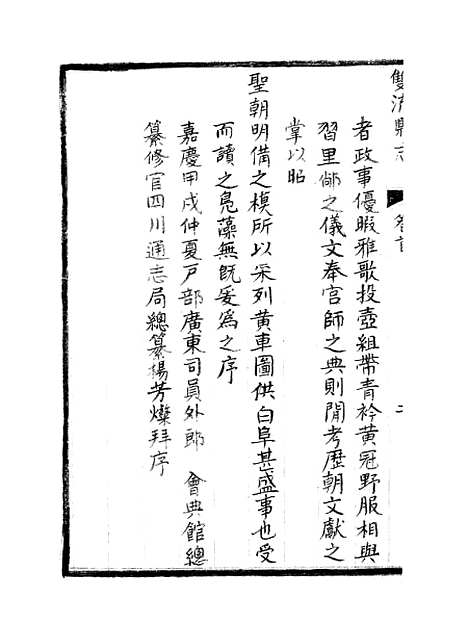 雙流縣志 卷首 二
者政事優暇雅歌投壺組帶青衿黃冠野服相與
習里鄉之儀文奉官師之典則閒考歷朝文獻之
掌以昭
聖朝明備之模所以采列黃車圖供白阜甚盛事也受
而讀之鳧藻無旣爰爲之序
嘉慶甲戌仲夏戸部廣東司員外郎 會典館總
纂修官四川通志局總纂楊芳燦拜序